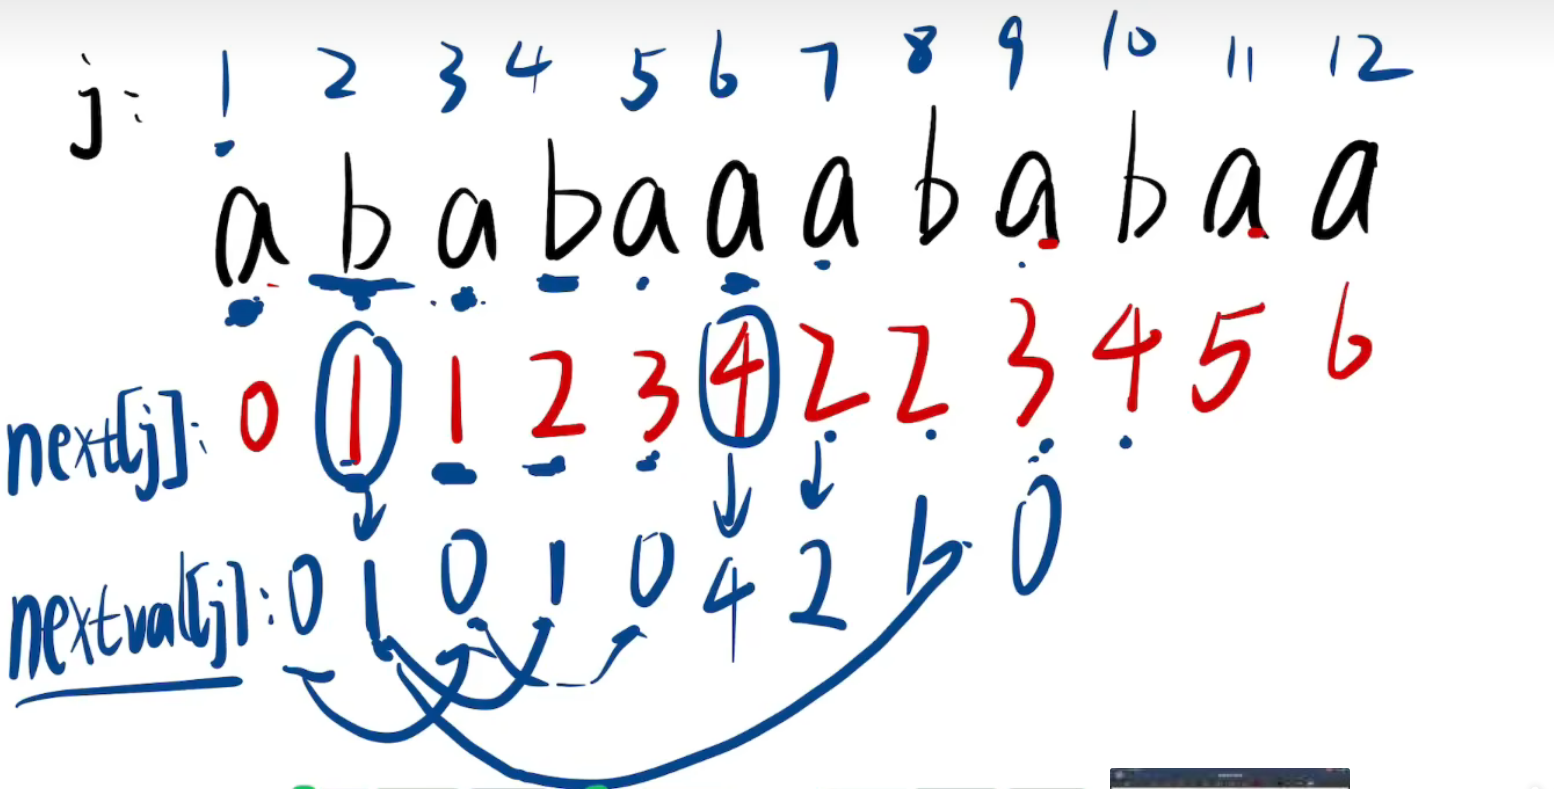 j: 1 2 3 4 5 6 7 8 9 10 11 12
a b a b a a a b a b a a
next[j]: 0 1 1 2 3 4 2 2 3 4 5 6
nextval[j]: 0 1 0 1 0 4 2 b 0